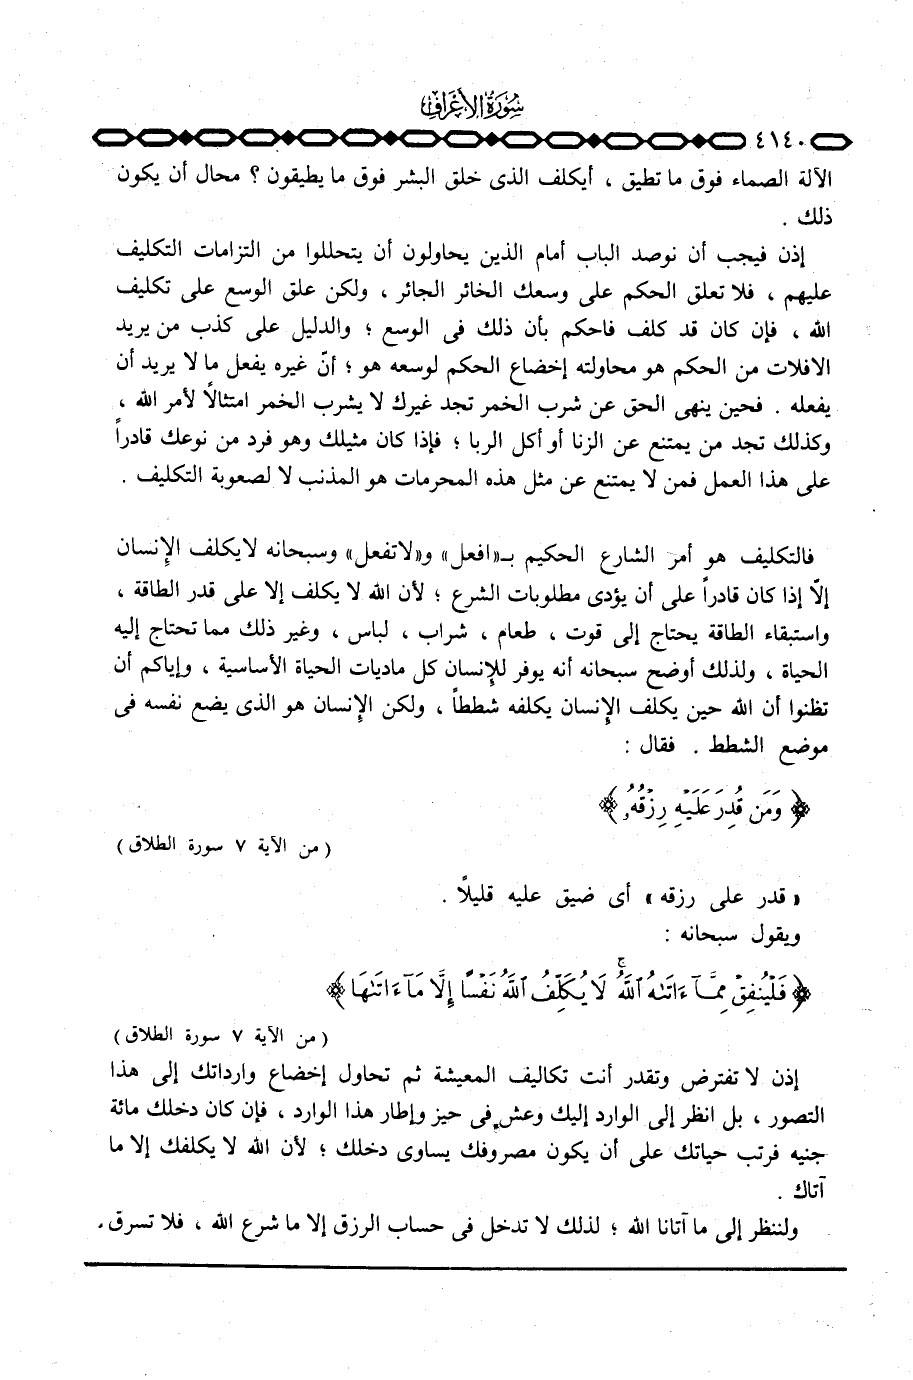 سورة الأعراف
٤١٤٠
الآلة الصماء فوق ما تطيق ، أيكلف الذى خلق البشر فوق ما يطيقون ؟ محال أن يكون
ذلك .
إذن فيجب أن نوصد الباب أمام الذين يحاولون أن يتحللوا من التزامات التكليف
عليهم ، فلا تعلق الحكم على وسعك الخائر الجائر ، ولكن علق الوسع على تكليف
الله ، فإن كان قد كلف فاحكم بأن ذلك فى الوسع ؛ والدليل على كذب من يريد
الافلات من الحكم هو محاولته إخضاع الحكم لوسعه هو ؛ أنّ غيره يفعل ما لا يريد أن
يفعله . فحين ينهى الحق عن شرب الخمر تجد غيرك لا يشرب الخمر امتثالاً لأمر الله ،
وكذلك تجد من يمتنع عن الزنا أو أكل الربا ؛ فإذا كان مثيلك وهو فرد من نوعك قادراً
على هذا العمل فمن لا يمتنع عن مثل هذه المحرمات هو المذنب لا لصعوبة التكليف .
فالتكليف هو أمر الشارع الحكيم بـ«افعل» و«لاتفعل» وسبحانه لايكلف الإنسان
إلاّ إذا كان قادراً على أن يؤدى مطلوبات الشرع ؛ لأن الله لا يكلف إلا على قدر الطاقة ،
واستبقاء الطاقة يحتاج إلى قوت ، طعام ، شراب ، لباس ، وغير ذلك مما تحتاج إليه
الحياة ، ولذلك أوضح سبحانه أنه يوفر للإنسان كل ماديات الحياة الأساسية ، وإياكم أن
تظنوا أن الله حين يكلف الإنسان يكلفه شططاً ، ولكن الإنسان هو الذى يضع نفسه فى
موضع الشطط . فقال :
﴿ وَمَن قُدِرَ عَلَيْهِ رِزْقُهُۥ ﴾
( من الآية ٧ سورة الطلاق )
« قدر على رزقه » أى ضيق عليه قليلاً .
ويقول سبحانه :
﴿ فَلْيُنفِقْ مِمَّآ ءَاتَىٰهُ ٱللَّهُ ۚ لَا يُكَلِّفُ ٱللَّهُ نَفْسًا إِلَّا مَآ ءَاتَىٰهَا ﴾
( من الآية ٧ سورة الطلاق )
إذن لا تفترض وتقدر أنت تكاليف المعيشة ثم تحاول إخضاع وارداتك إلى هذا
التصور ، بل انظر إلى الوارد إليك وعش فى حيز وإطار هذا الوارد ، فإن كان دخلك مائة
جنيه فرتب حياتك على أن يكون مصروفك يساوى دخلك ؛ لأن الله لا يكلفك إلا ما
آتاك .
ولننظر إلى ما آتانا الله ؛ لذلك لا تدخل فى حساب الرزق إلا ما شرع الله ، فلا تسرق ،